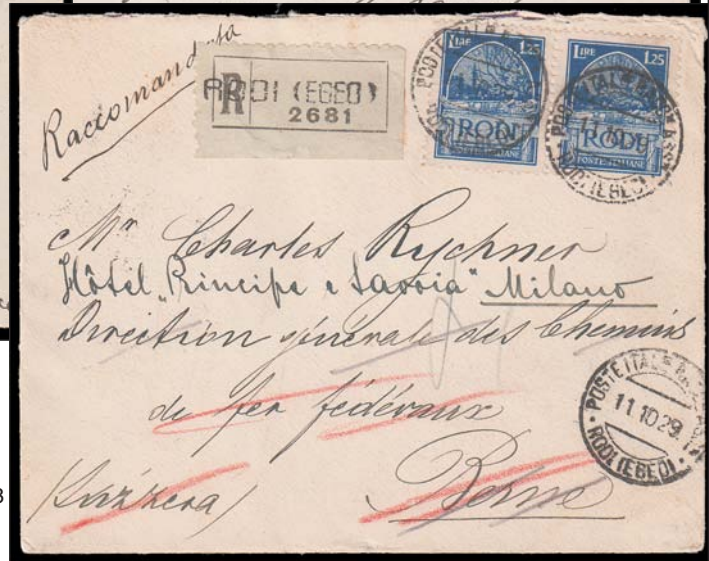 Raccomandata
R
RODI (EGEO)
2681
LIRE 1.25
RODI
POSTE ITALIANE
LIRE 1.25
RODI
POSTE ITALIANE
11.10.29
RODI (EGEO)
Mr Charles Rychner
Hôtel „Principe e Savoia" Milano
Direction générale des Chemins
de fer fédéraux
(Svizzera) Berne
POSTE ITALE
11.10.29
RODI (EGEO)
3